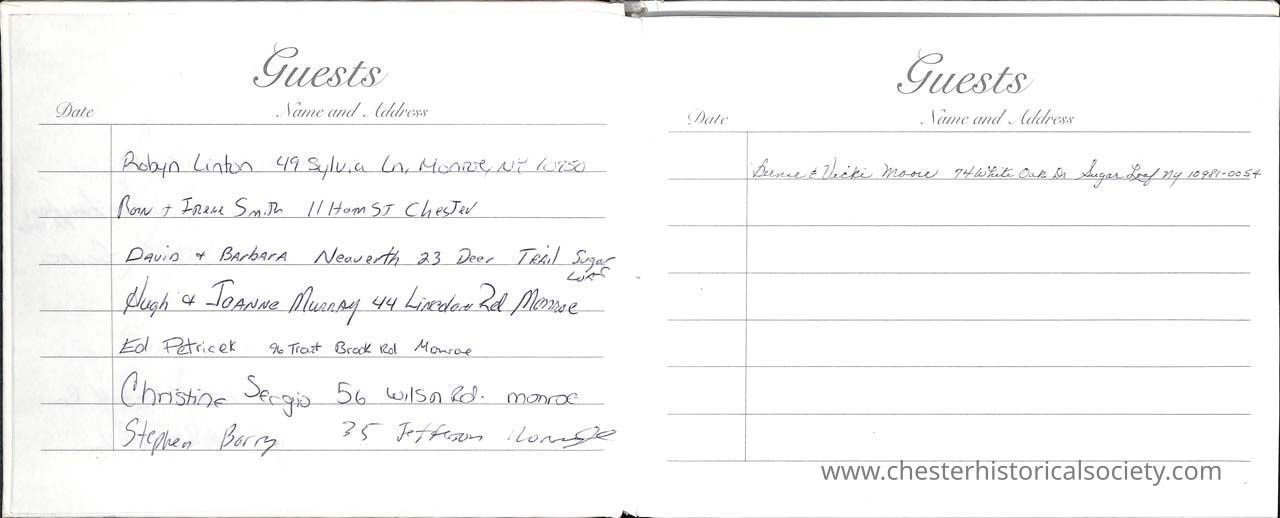 Guests
Date Name and Address
Robyn Linton 49 Sylvia Ln, Monroe, NY 10950
Ron + Irene Smith 11 Ham St Chester
David + Barbara Neaverth 23 Deer Trail Sugar
Loaf
Hugh & Joanne Murray 44 Lincoln Rd Monroe
Ed Petricek 96 Trout Brook Rd Monroe
Christine Sergio 56 Wilson Rd. monroe
Stephen Barry 35 Jefferson
Guests
Date Name and Address
Bernie & Vicki Moore 74 White Oak Dr Sugar Loaf Ny 10981-0054
www.chesterhistoricalsociety.com